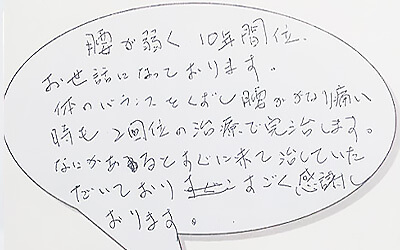 腰が弱く 10年間位、
お世話になっております。
体のバランスをくずし腰がかなり痛い
時も 2回位の治療で完治します。
なにかあるとすぐに来て治していた
だいており すごく感謝し
おります。